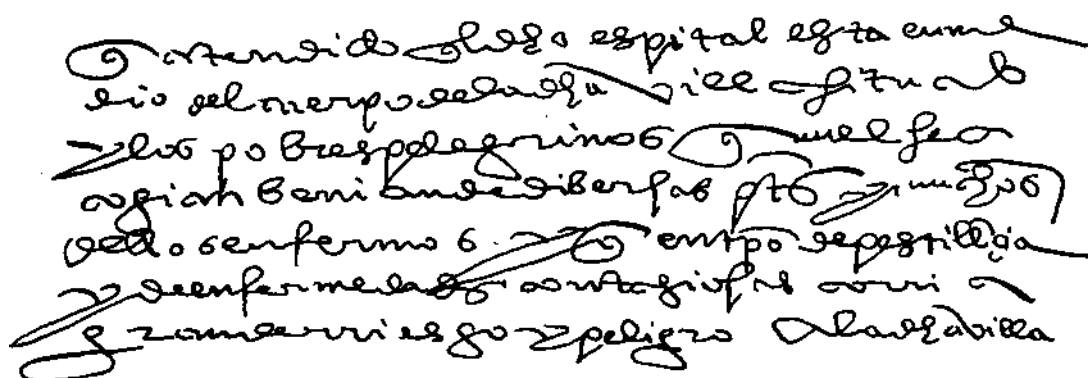 q atendido q el dho espital esta enme
dio del cuerpo de la dha villa situado
y los pobres pelegrinos q en el se a
cogian benian de dibersas ptes y muchos
dellos enfermos y q en tpo de pestilençia
y de enfermedades contagiosas corria
grande rriesgo y peligro a la dha villa